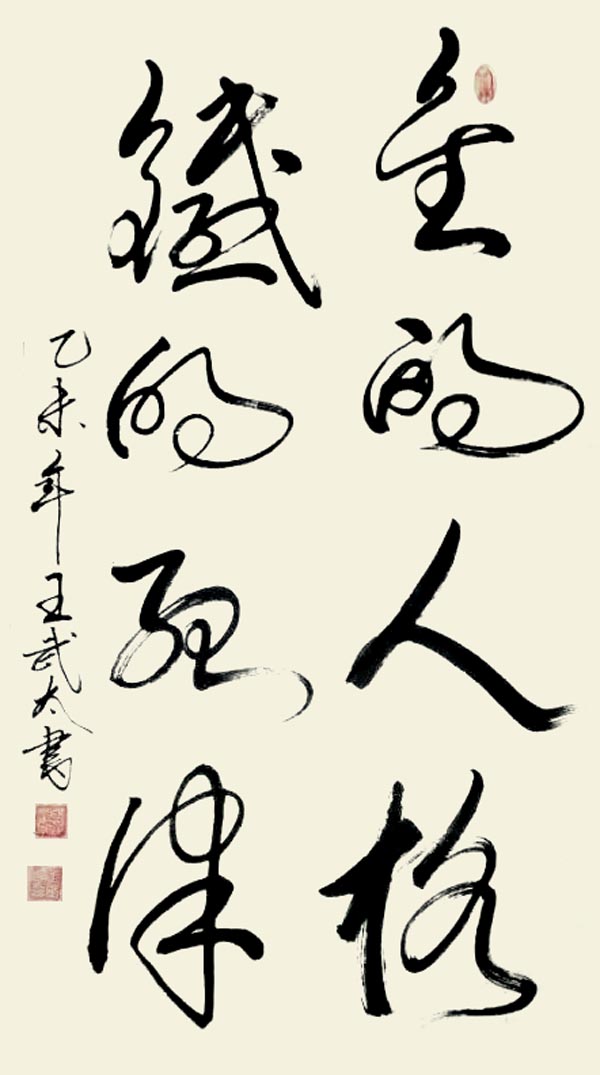 金的人格
鐵的紀律
乙未年王武太書